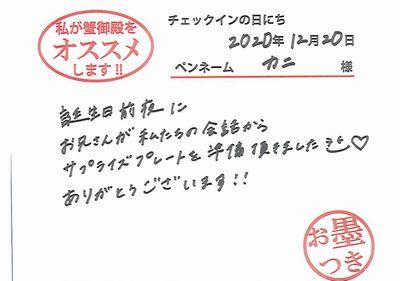 私が蟹御殿を
オススメ
します!!
チェックインの日にち
2020年12月20日
ペンネーム カニ 様
誕生日前夜に
お兄さんが私たちの会話から
サプライズプレートを準備頂きました
ありがとうございます!!
お墨
つき